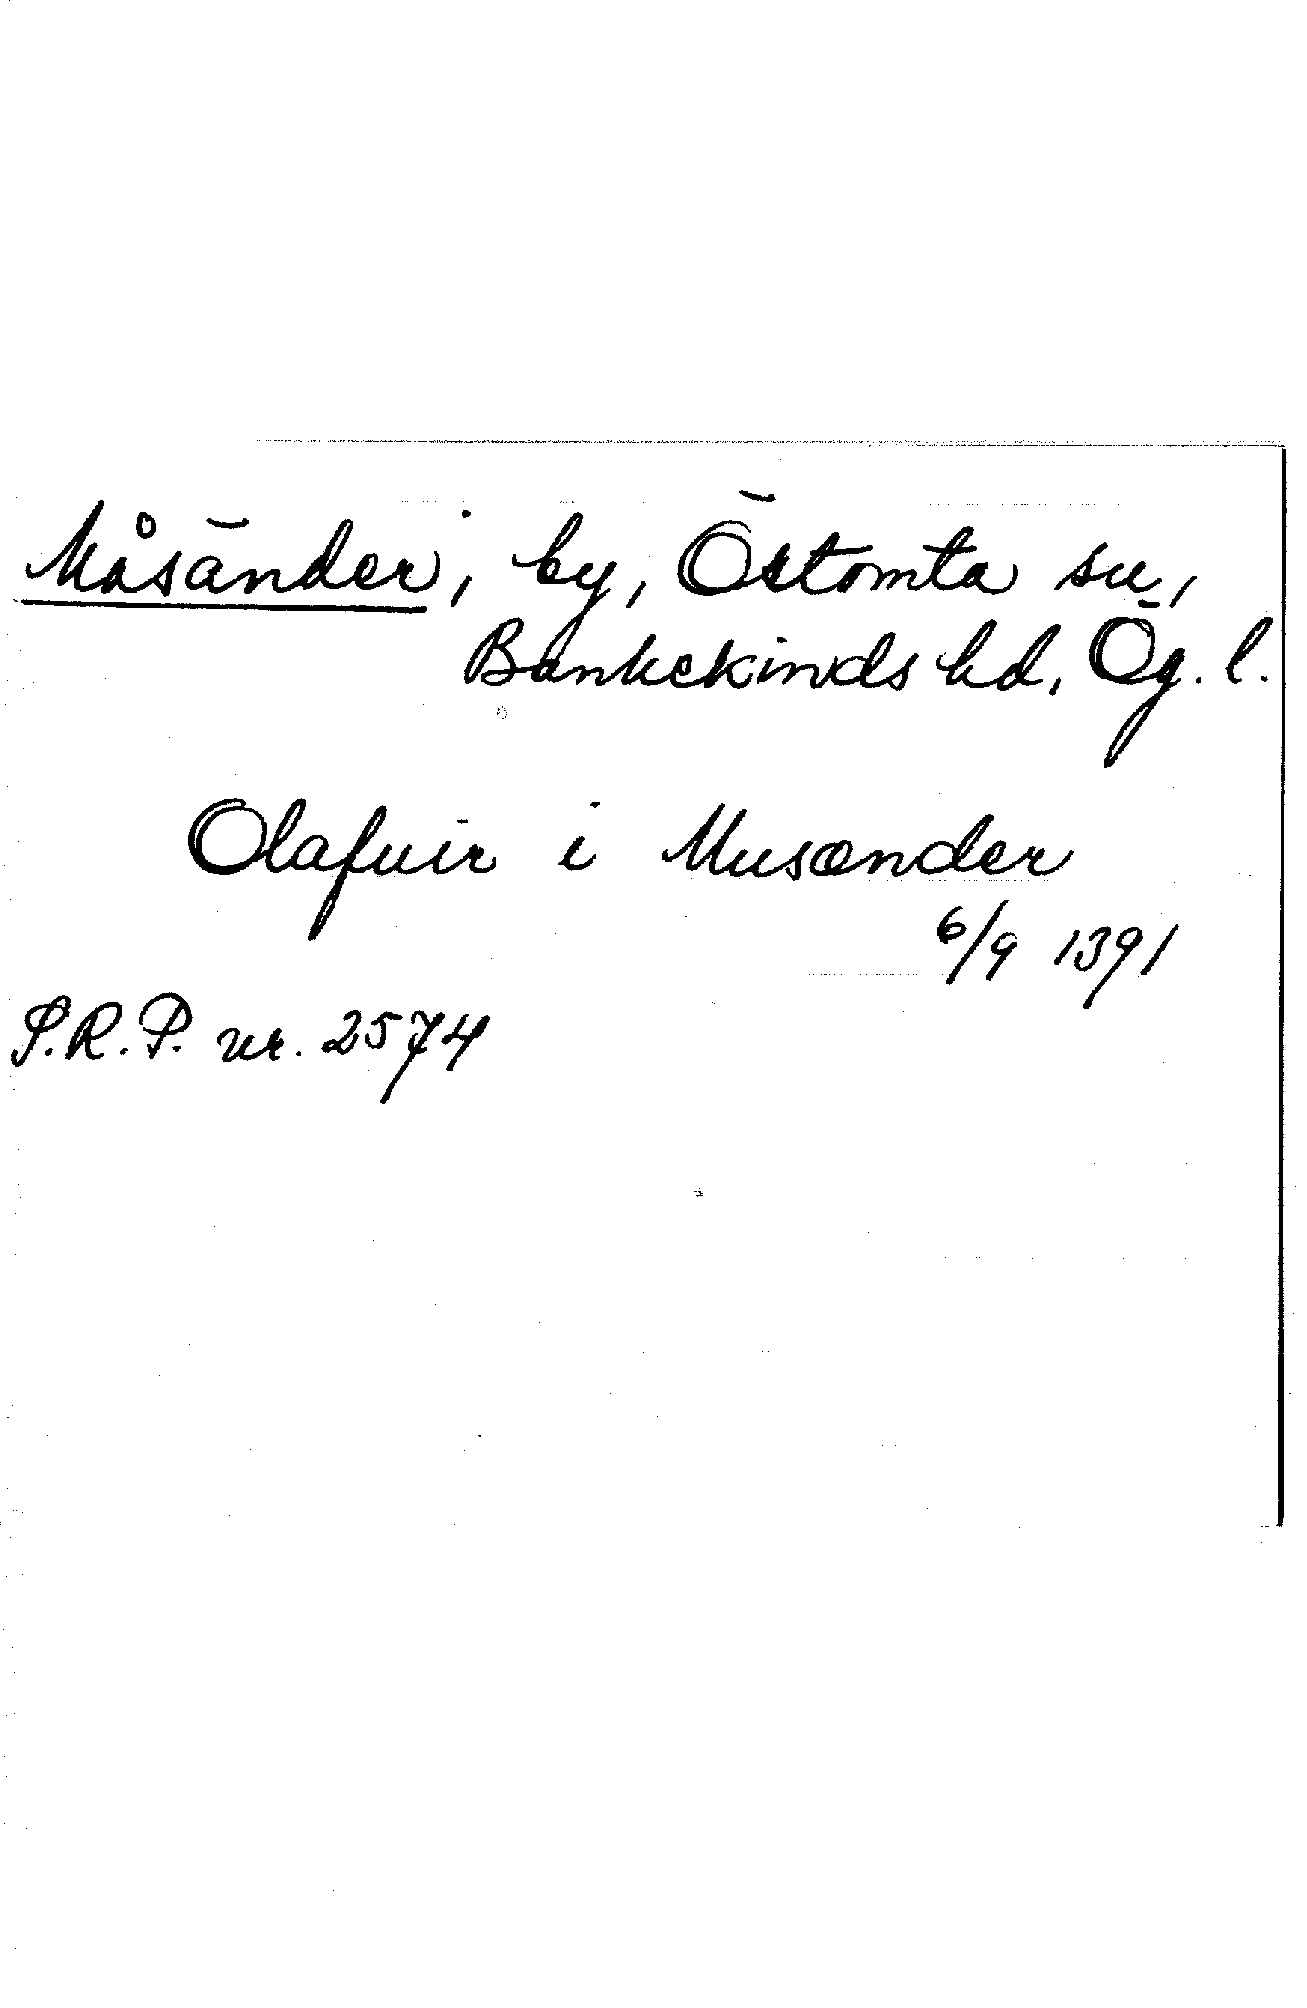 Måsänder, by, Östomta sn,
Bankekinds hd, Ög. l.
Olafuir i Musænder
6/9 1391
S.R.P. nr. 2574